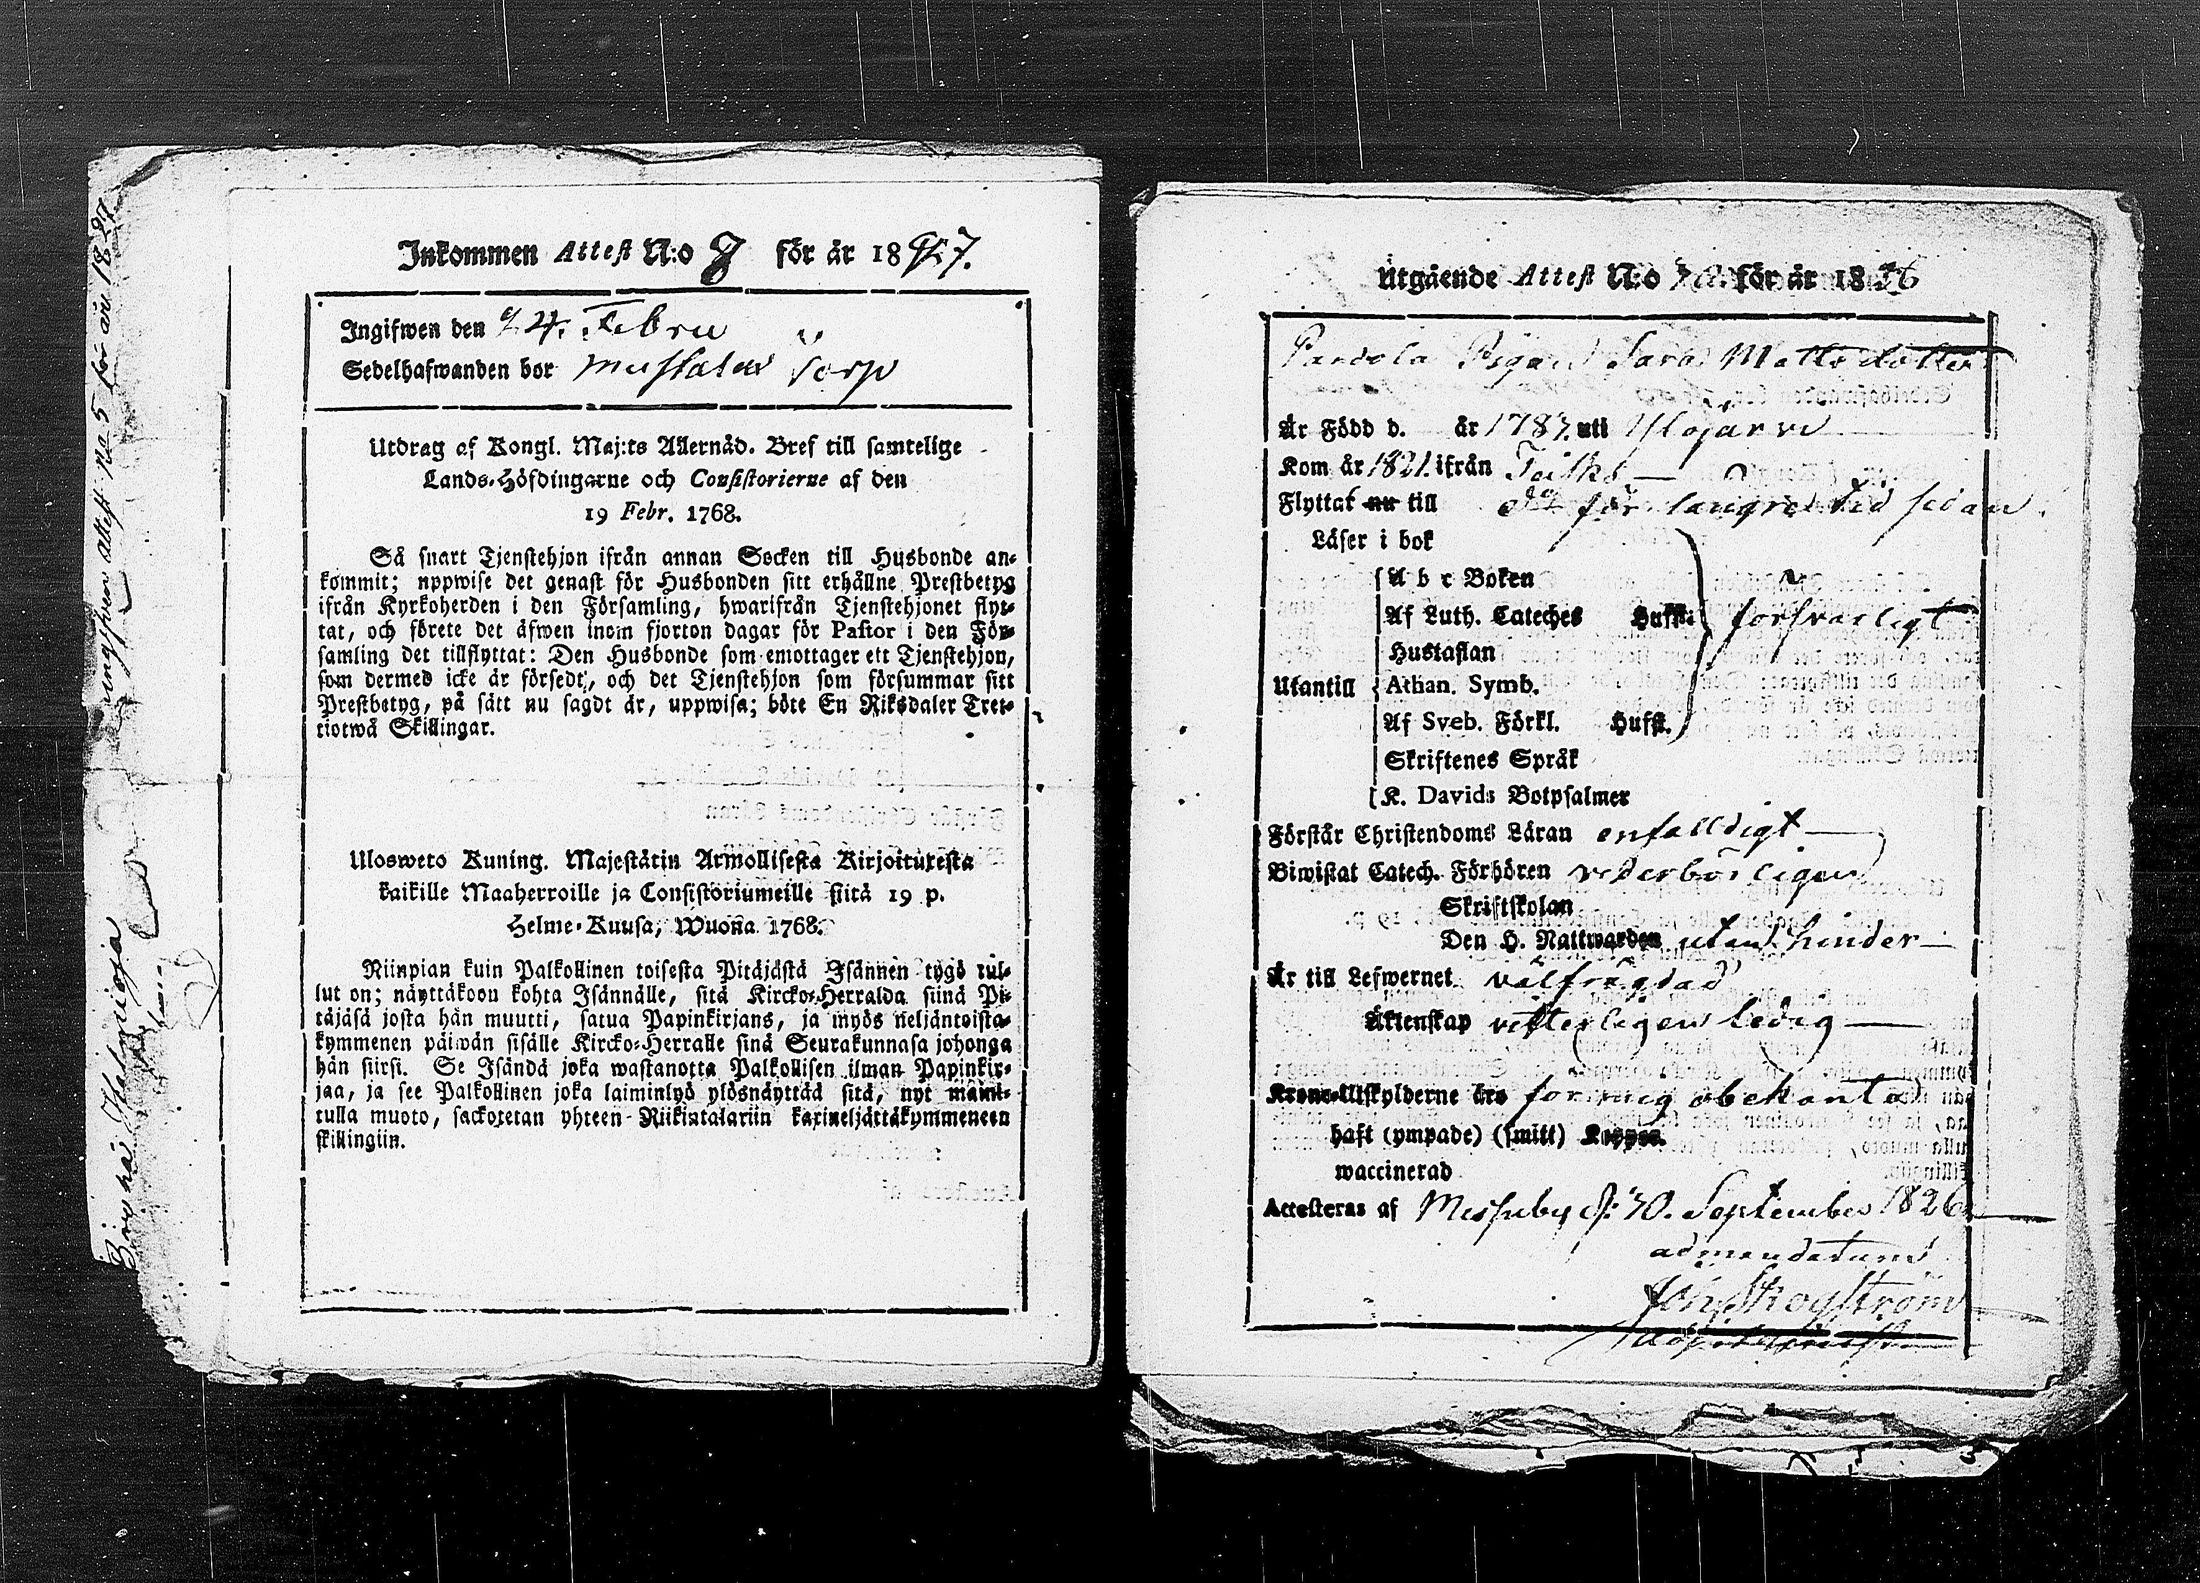 Inkommen Attest N:o 8 för år 1827.
Ingifwen den 24. Febru
Sedelhafwanden bor Mustalax Torp
Utdrag af Kongl. Maj:ts Allernåd. Bref till samtelige
Lands-Höfdingarne och Consistorierne af den
19 Febr. 1768.
Så snart Tjenstehjon ifrån annan Socken till Husbonde an-
kommit; uppwise det genast för Husbonden sitt erhållne Prestbetyg
ifrån Kyrkoherden i den Församling, hwarifrån Tjenstehjonet flyt-
tat, och förete det äfwen inom fjorton dagar för Pastor i den För-
samling det tillflyttat: Den Husbonde som emottager ett Tjenstehjon,
som dermed icke är försedt, och det Tjenstehjon som försummar sitt
Prestbetyg, på sätt nu sagdt är, uppwisa; böte En Riksdaler Tret-
tiotwå Skillingar.
Ulosweto Kuning. Majestätin Armollisesta Kirjoituxesta
kaikille Maaherroille ja Consistoriumeille siitä 19 p.
Helme-Kuusa, Wuonna 1768.
Niinpian kuin Palkollinen toisesta Pitäjästä Isännen tygö tul-
lut on; näyttäköön kohta Isännälle, sitä Kircko-Herralda siinä Pi-
täjäsä josta hän muutti, satua Papinkirjans, ja myös neljäntoista-
kymmenen päiwän sisälle Kircko-Herralle sinä Seurakunnasa johonga
hän siirsi. Se Isändä joka wastanotta Palkollisen ilman Papinkir-
jaa, ja see Palkollinen joka laiminlyö ylösnäyttää sitä, nyt maini-
tulla muoto, sackotetan yhteen Riikintalariin kaxineljättäkymmeneen
skillingiin.
ingifven attest No 5 för år 1827
Utgående Attest N:o för år 1826
Pardola Pigan Sara Mattsdotter
Är Född d. år 1787. uti Ylöjärvi
Kom år 1821. ifrån Teisko
Flyttat nu till d:o för längre tid sedan
Läser i bok
A b c Boken
Af Luth. Cateches Hufst. försvarligt
Hustaflan
Utantill Athan. Symb.
Af Sveb. Förkl. Hufst.
Skriftenes Språk
K. Davids Botpsalmer
Förstår Christendoms Läran enfalldigt
Biwistat Catech. Förhören vederbörligen
Skriftskolan
Den H. Nattwarden utan hinder
Är till Lefwernet välfrägdad
Äktenskap vitterligen ledig
Krono-Utskylderne äro för mig obekanta
haft (ympade) (smitt) Koppor.
waccinerad
Attesteras af Messuby d: 30. September 1826
ad mandatum